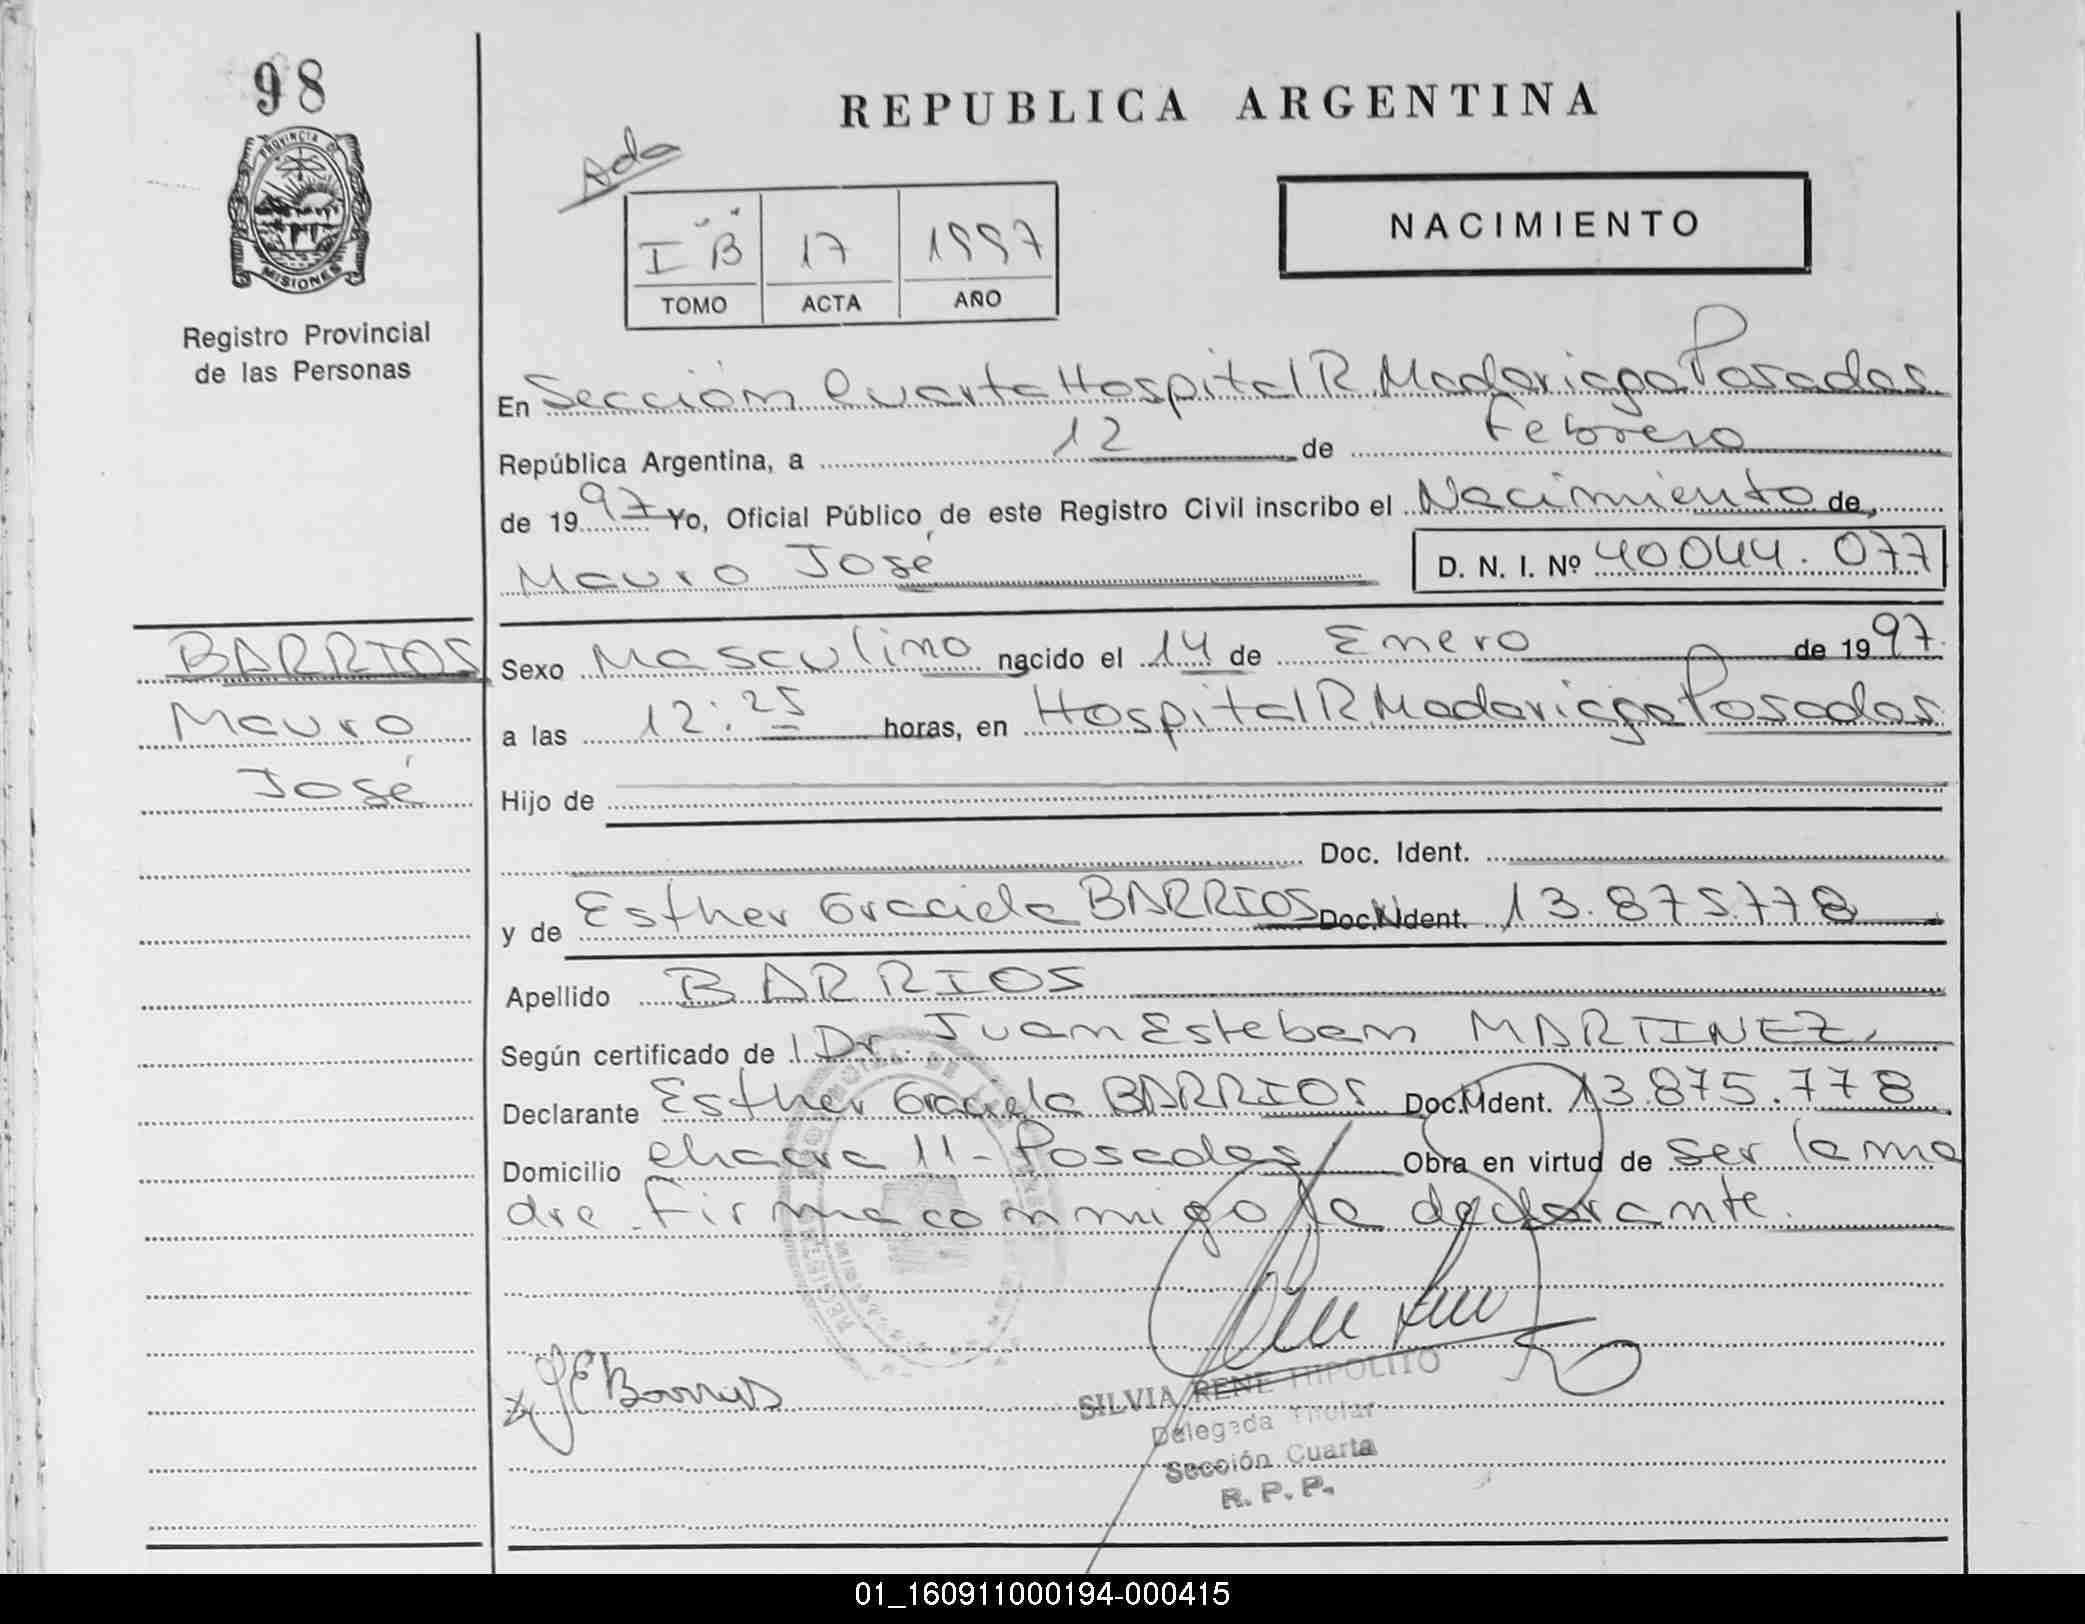 98
PROVINCIA DE
MISIONES
Registro Provincial
de las Personas
REPUBLICA ARGENTINA
Ada
I "B" 17 1997
TOMO ACTA AÑO
NACIMIENTO
En Sección Cuarta Hospital R Madariaga Posadas
República Argentina, a 12 de Febrero
de 1997 Yo, Oficial Público de este Registro Civil inscribo el Nacimiento de
Mauro José D. N. I. Nº 40044.077
BARRIOS
Mauro
José
Sexo Masculino nacido el 14 de Enero de 1997.
a las 12:25 horas, en Hospital R Madariaga Posadas
Hijo de
Doc. Ident.
y de Esther Graciela BARRIOS Doc. Ident. 13.875.778
Apellido BARRIOS
Según certificado de Dr. Juan Esteban MARTINEZ
Declarante Esther Graciela BARRIOS Doc. Ident. 13.875.778
Domicilio chacra 11 - Posadas Obra en virtud de ser la ma
dre. Firma conmigo la declarante.
Barrios
SILVIA RENE HIPOLITO
Delegada Titular
Sección Cuarta
R. P. P.
01_160911000194-000415